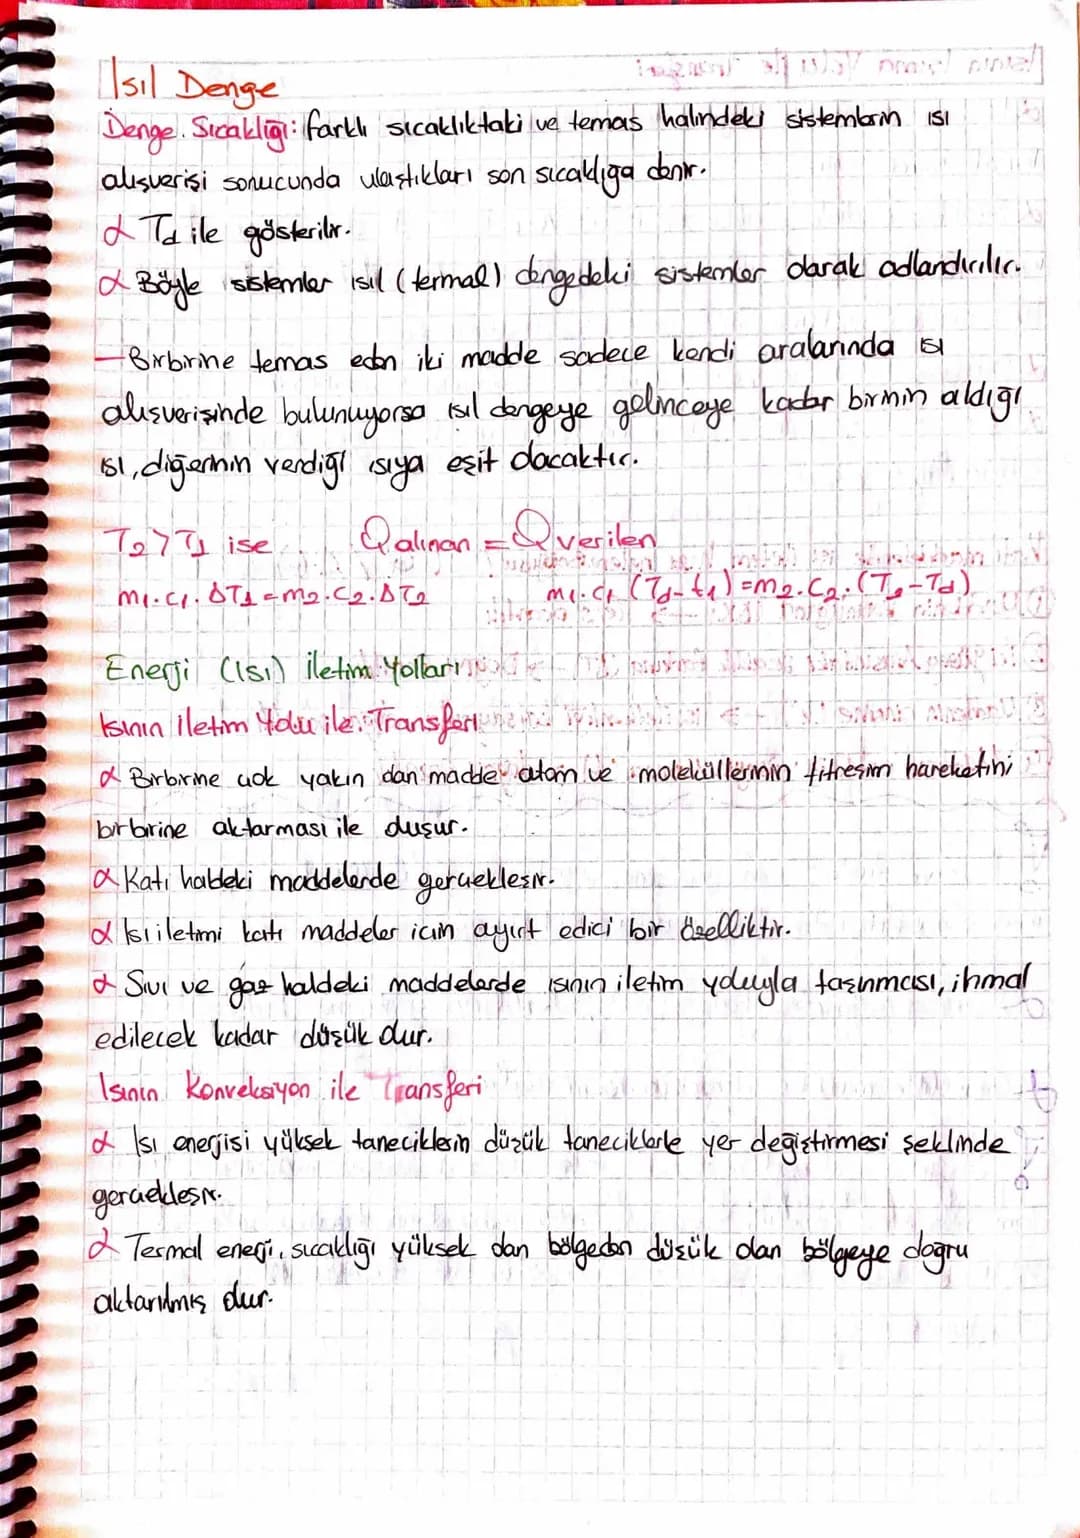 Isıl Denge
Denge Sıcaklığı: farklı sıcaklıktaki ve temas halindeki sistemlerin ısı
alışverişi sonucunda ulaştıkları son sıcaklığa denir.
α Td ile gösterilir.
α Böyle sistemler ısıl (termal) dengedeki sistemler olarak adlandırılır.
- Birbirine temas eden iki madde sadece kendi aralarında ısı
alışverişinde bulunuyorsa ısıl dengeye gelinceye kadar birinin aldığı
ısı, diğerinin verdiği ısıya eşit olacaktır.
T2>T1 ise Qalınan = Qverilen
m1.c1.ΔT1=m2.c2.ΔT2 m1.c1 (Td-t1)=m2.c2.(T2-Td)
Enerji (Isı) İletim Yolları
Isının İletim Yolu ile Transferi
α Birbirine çok yakın olan madde atom ve moleküllerinin titreşim hareketini
birbirine aktarması ile oluşur.
α Katı haldeki maddelerde gerçekleşir.
α Isı iletimi katı maddeler için ayırt edici bir özelliktir.
α Sıvı ve gaz haldeki maddelerde ısının iletim yoluyla taşınması, ihmal
edilecek kadar düşük olur.
Isının Konveksiyon ile Transferi
α Isı enerjisi yüksek taneciklerin düşük taneciklerle yer değiştirmesi şeklinde
gerçekleşir.
α Termal enerji, sıcaklığı yüksek olan bölgeden düşük olan bölgeye doğru
aktarılmış olur.